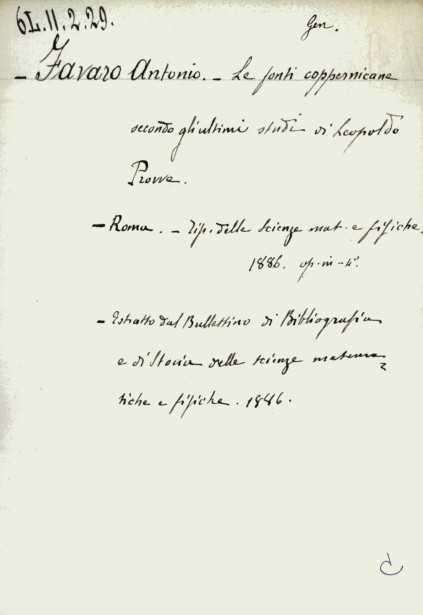 6L.11.2.29.
Gen.
- Favaro Antonio. - Le fonti coppernicane
secondo gli ultimi studi di Leopoldo
Prowe.
- Roma. - Tip. delle Scienze mat. e fisiche.
1886. op. in-4°.
- Estratto dal Bullettino di Bibliografia
e di Storia delle scienze matema-
tiche e fisiche. 1886.